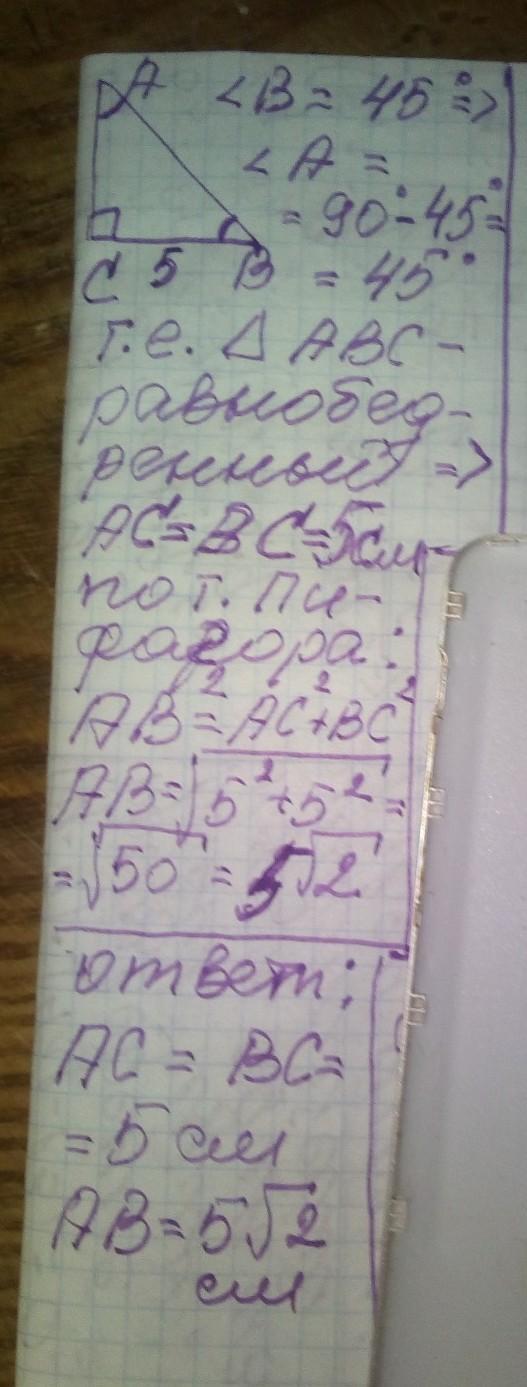 A <B = 45° =>
<A =
= 90° - 45° =
C 5 B = 45°
т.е. Δ ABC -
равнобед-
ренный =>
AC = BC = 5 см
по т. Пи-
фагора:
AB² = AC² + BC²
AB = √5² + 5² =
= √50 = 5√2
ответ:
AC = BC =
= 5 см
AB = 5√2
см